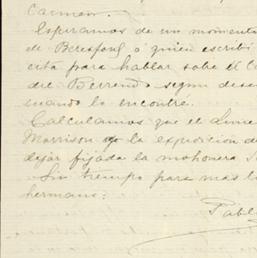 Carmen.
Esperamos de un momento
de Beresford á quien escribí
cita para hablar sobre el
del Berrendo segun
cuando lo encontré.
Calculamos que el
Morrison la expedición de
dejar fijada la mohonera
Sin tiempo para mas
hermano:
Pabl